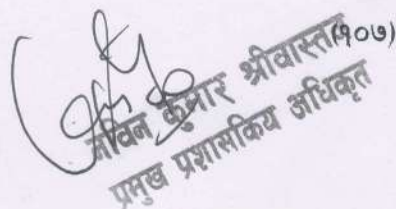 (१०७)
जीवन कुमार श्रीवास्तव
प्रमुख प्रशासकिय अधिकृत